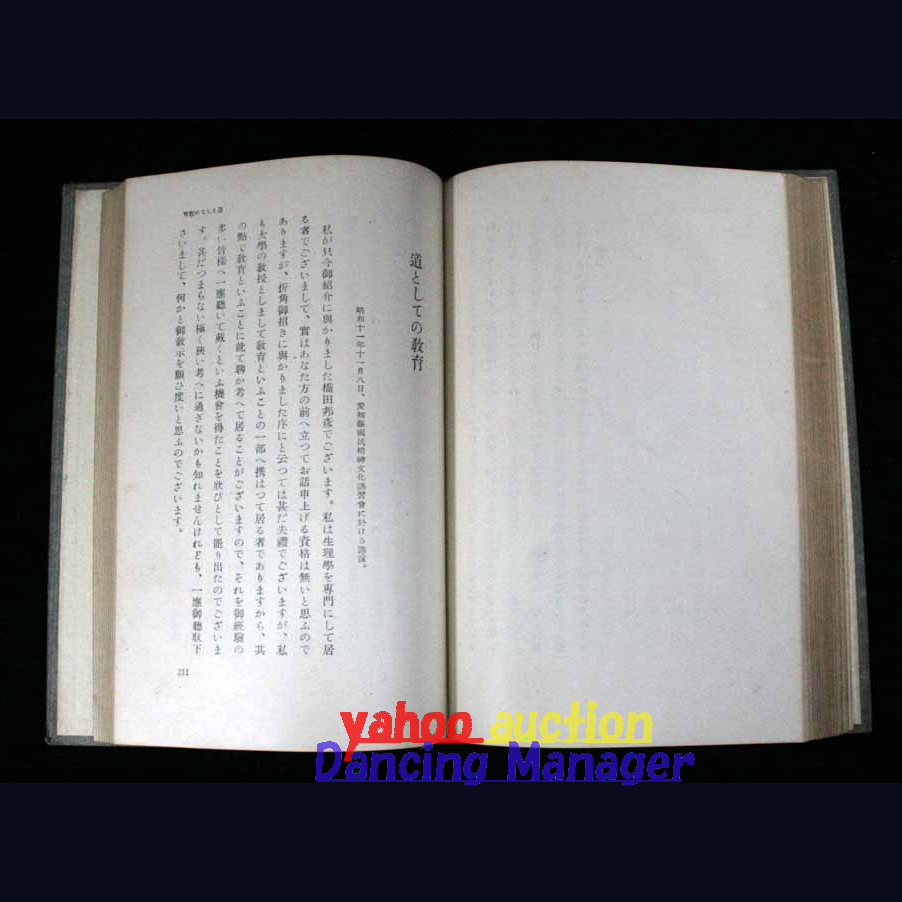 道としての教育
道としての敎育
昭和十一年十一月八日、愛知縣國民精神文化講習會に於ける講演。
私が只今御紹介に與かりました橋田邦彥でございます。私は生理學を專門にして居
る者でございまして、實はあなた方の前へ立つてお話申上げる資格は無いと思ふので
ありますが、折角御招きに與かりました序にと云つては甚だ失禮でございますが、私
も大學の敎授としまして敎育といふことの一部へ携はつて居る者でありますから、其
の點で敎育といふことに就て聊か考へて居ることがございますので、それを御經驗の
多い皆樣へ一應聽いて戴くといふ機會を得たことを欣びとして罷り出たのでございま
す。甚だつまらない極く狹い考へに過ぎないかも知れませんけれども、一應御聽取下
さいまして、何かと御敎示を願ひ度いと思ふのでございます。
211
yahoo auction
Dancing Manager